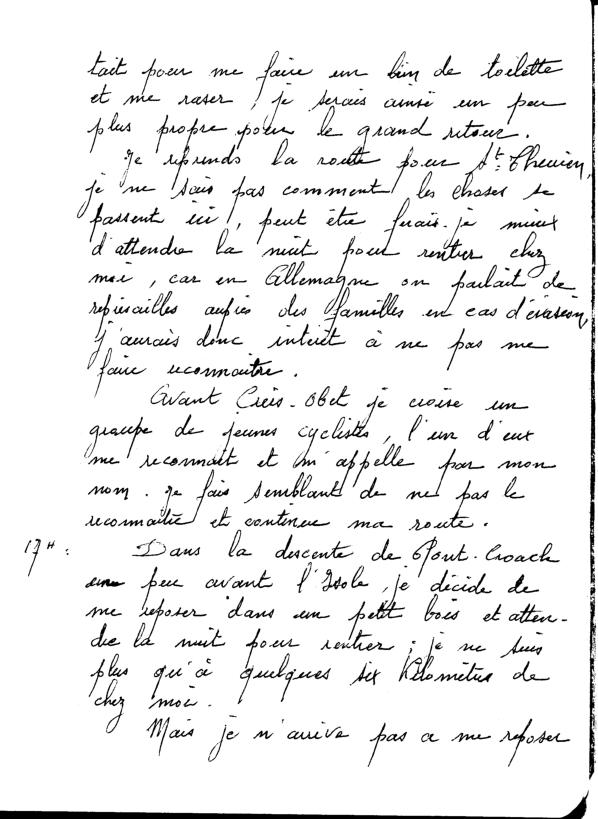 tait pour me faire un brin de toilette
et me raser, je serais ainsi un peu
plus propre pour le grand retour.
Je reprends la route pour St. Thurien,
je ne sais pas comment les choses se
passent ici, peut être ferais-je mieux
d'attendre la nuit pour rentrer chez
moi, car en Allemagne on parlait de
représailles auprès des familles en cas d'évasion,
j'aurais donc intérêt à ne pas me
faire reconnaitre.
Avant Crois-Obet je croise un
groupe de jeunes cyclistes, l'un d'eux
me reconnait et m'appelle par mon
nom. Je fais semblant de ne pas le
reconnaitre et continue ma route.
17H: Dans la descente de Pont-Croach
un peu avant l'Isole, je décide de
me reposer dans un petit bois et atten-
dre la nuit pour rentrer ; je ne suis
plus qu'à quelques six Kilomètres de
chez moi.
Mais je n'arrive pas a me reposer